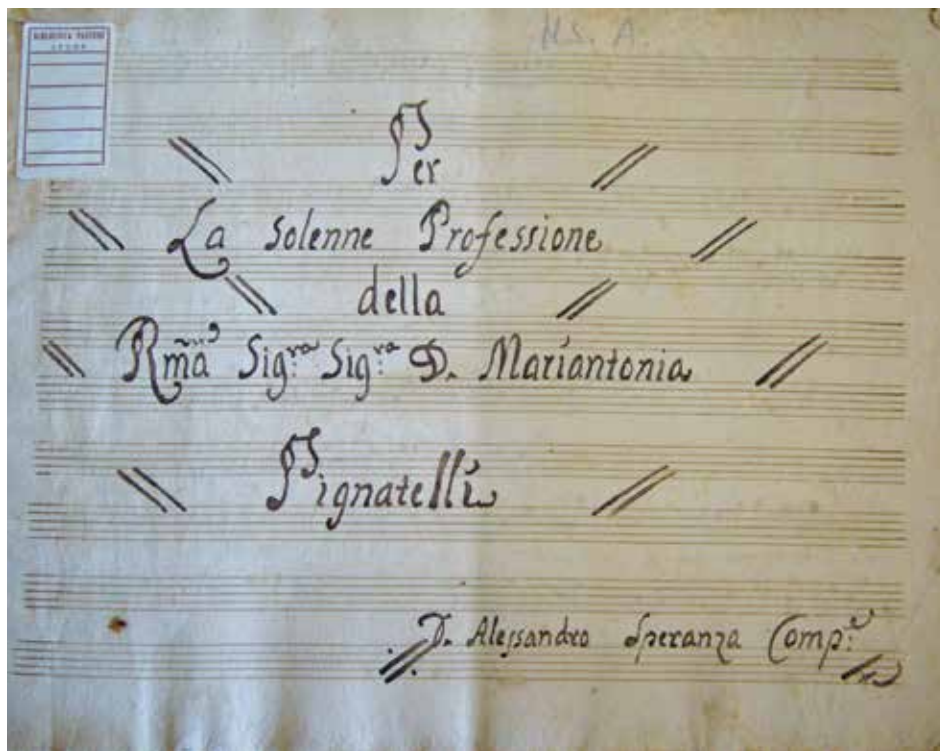 BIBLIOTECA
M.S. A.
Per
La Solenne Professione
della
Rma Sig.ra Sig.ra D. Mariantonia
Pignatelli
D. Alessandro Speranza Comp.e